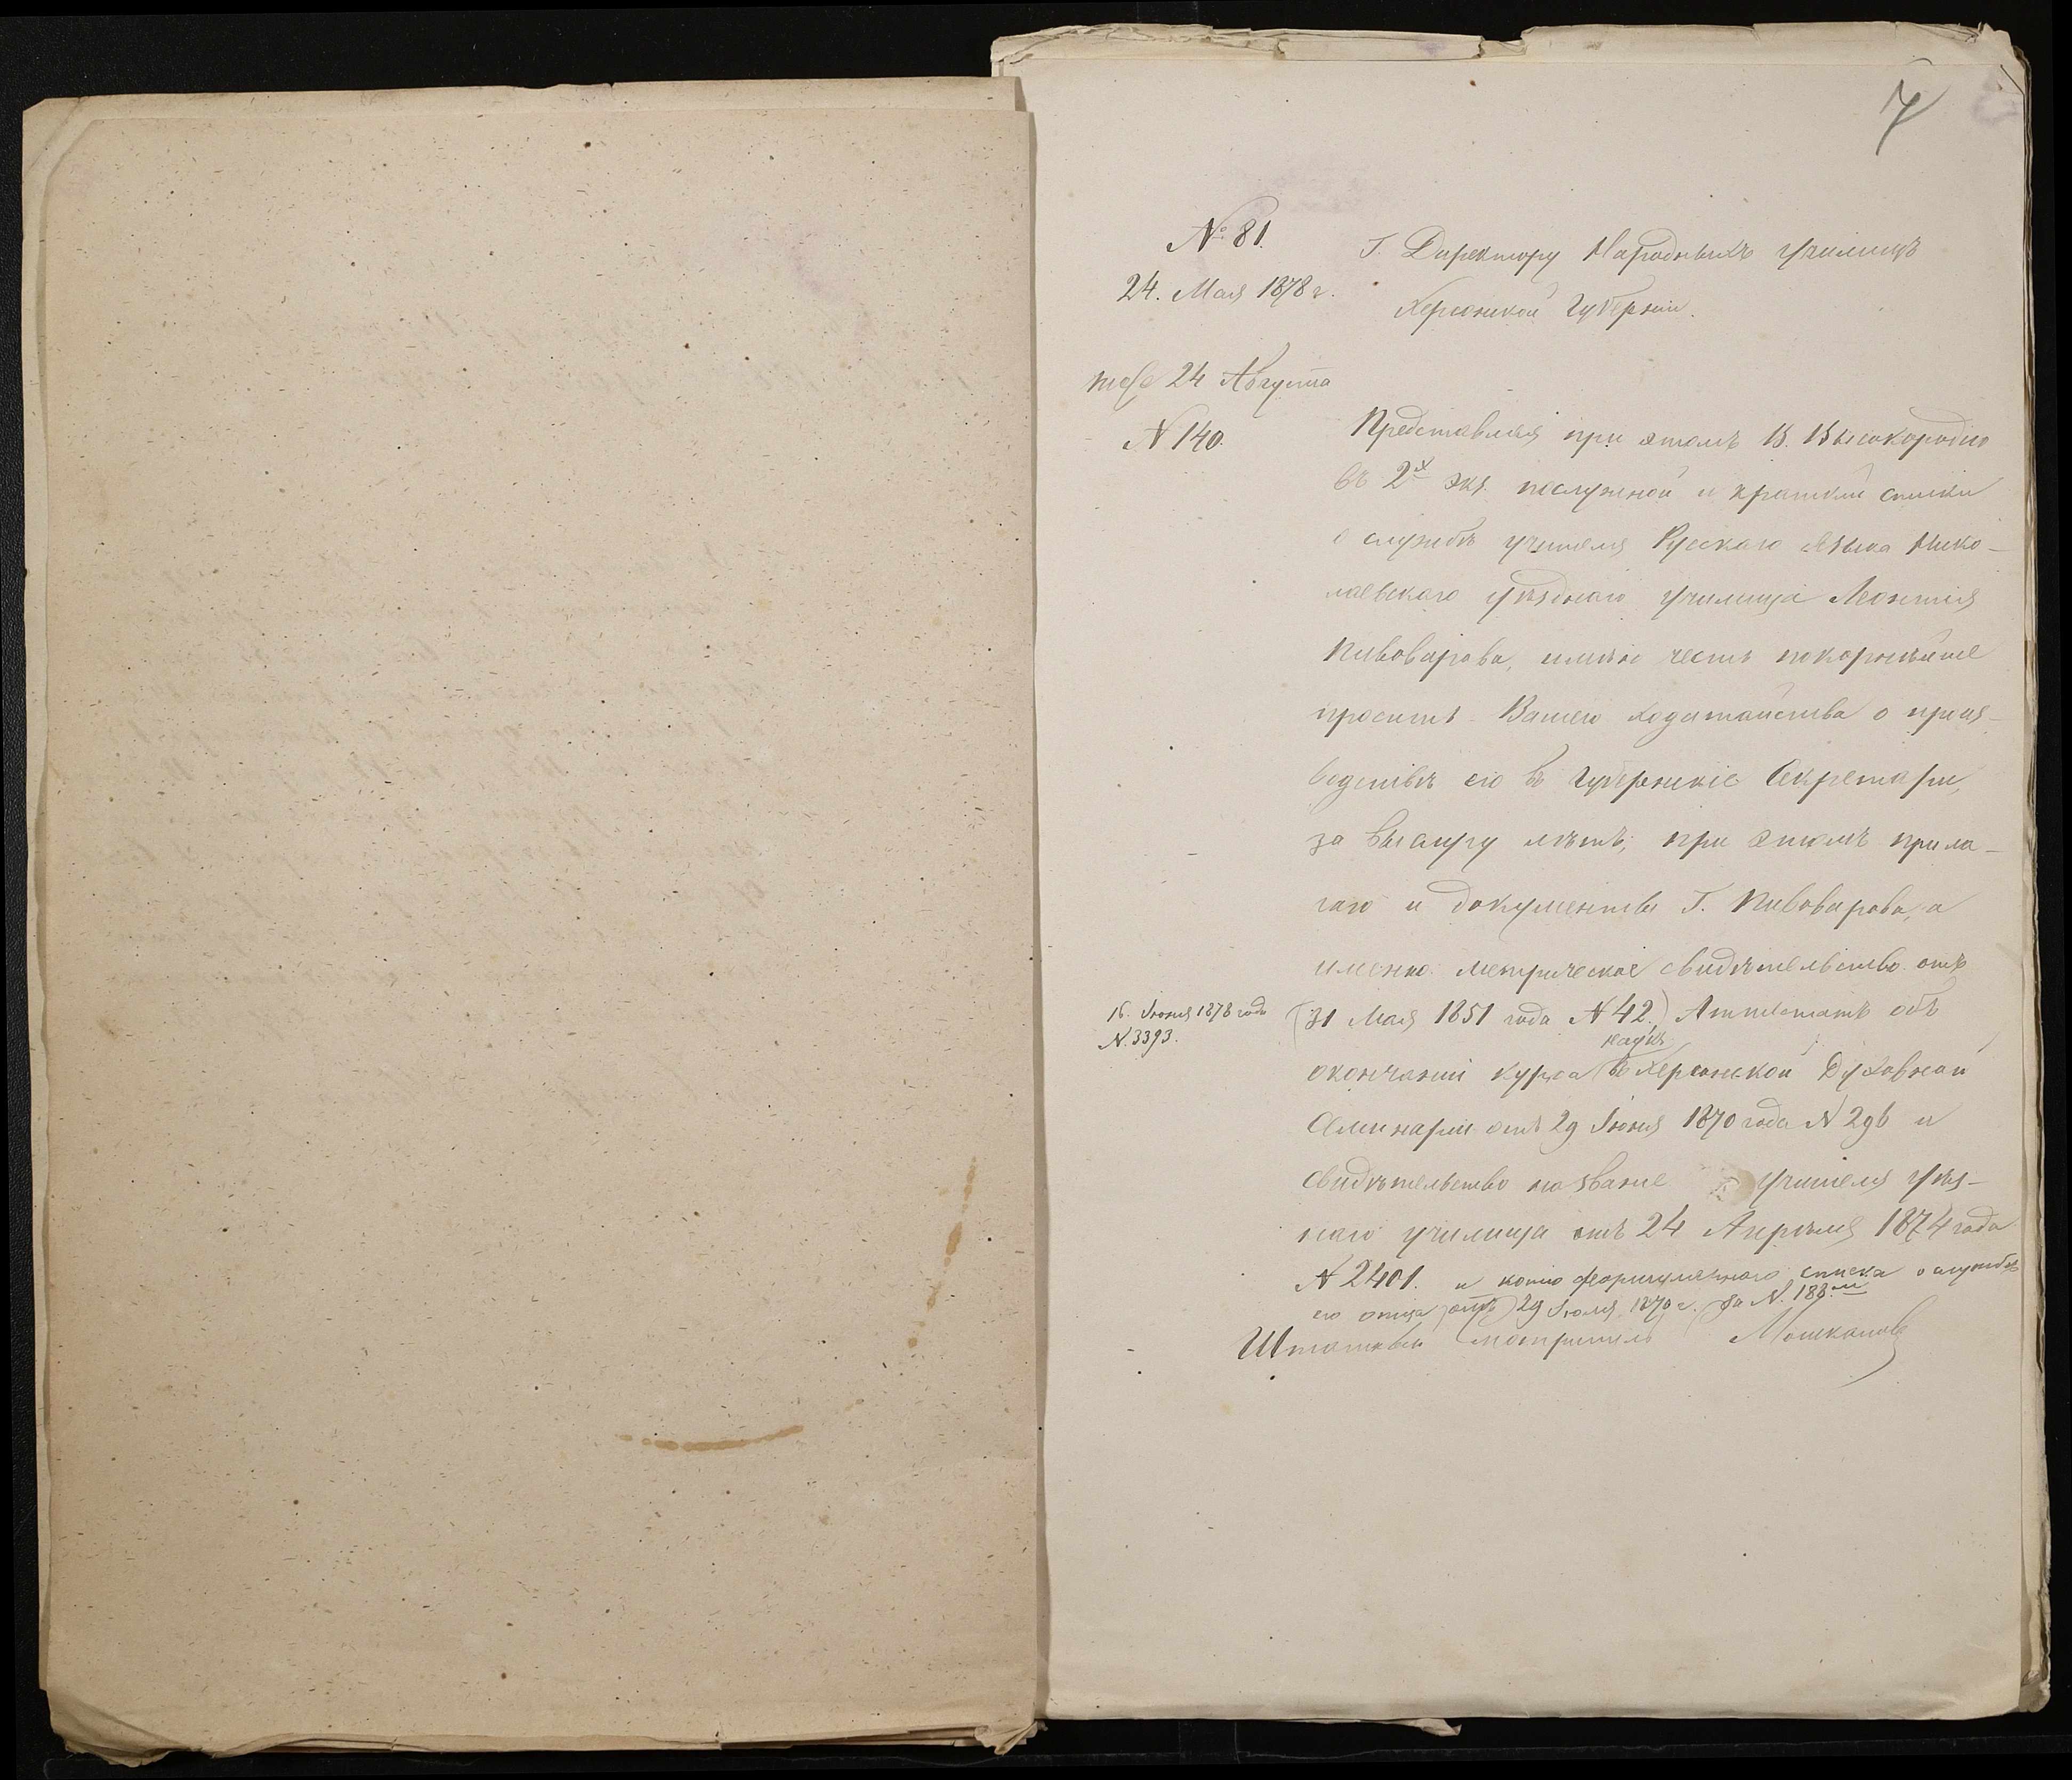 7
№ 81.
24. Мая 1878 г.
Г. Директору Народныхъ училищъ
Херсонской Губерніи.
24 Августа
№ 140.
Представляя при этомъ В. Высокородію
въ 2х экз. послужной и краткій списки
о службѣ учителя Русскаго языка Нико-
лаевскаго уѣзднаго училища Леонтія
Пивоварова, имѣю честь покорнѣйше
просить Вашего ходатайства о произ-
ведствѣ его въ Губернскіе Секретари,
за выслугу лѣтъ; при этомъ прила-
гаю и документы Г. Пивоварова, а
именно: метрическое свидѣтельство отъ
16. Іюня 1878 года
№ 3393.
(31 Мая 1851 года № 42,) Аттестатъ объ
наукъ
окончаніи курса въ Херсонской Духовной
Семинаріи отъ 29 Іюня 1870 года № 296 и
свидѣтельство на званіе учителя уѣз-
наго училища отъ 24 Апрѣля 1874 года
№ 2401. и копію формулярнаго списка о службѣ
его отца отъ 29 Іюля 1870 г. за № 188.
Штатный смотритель